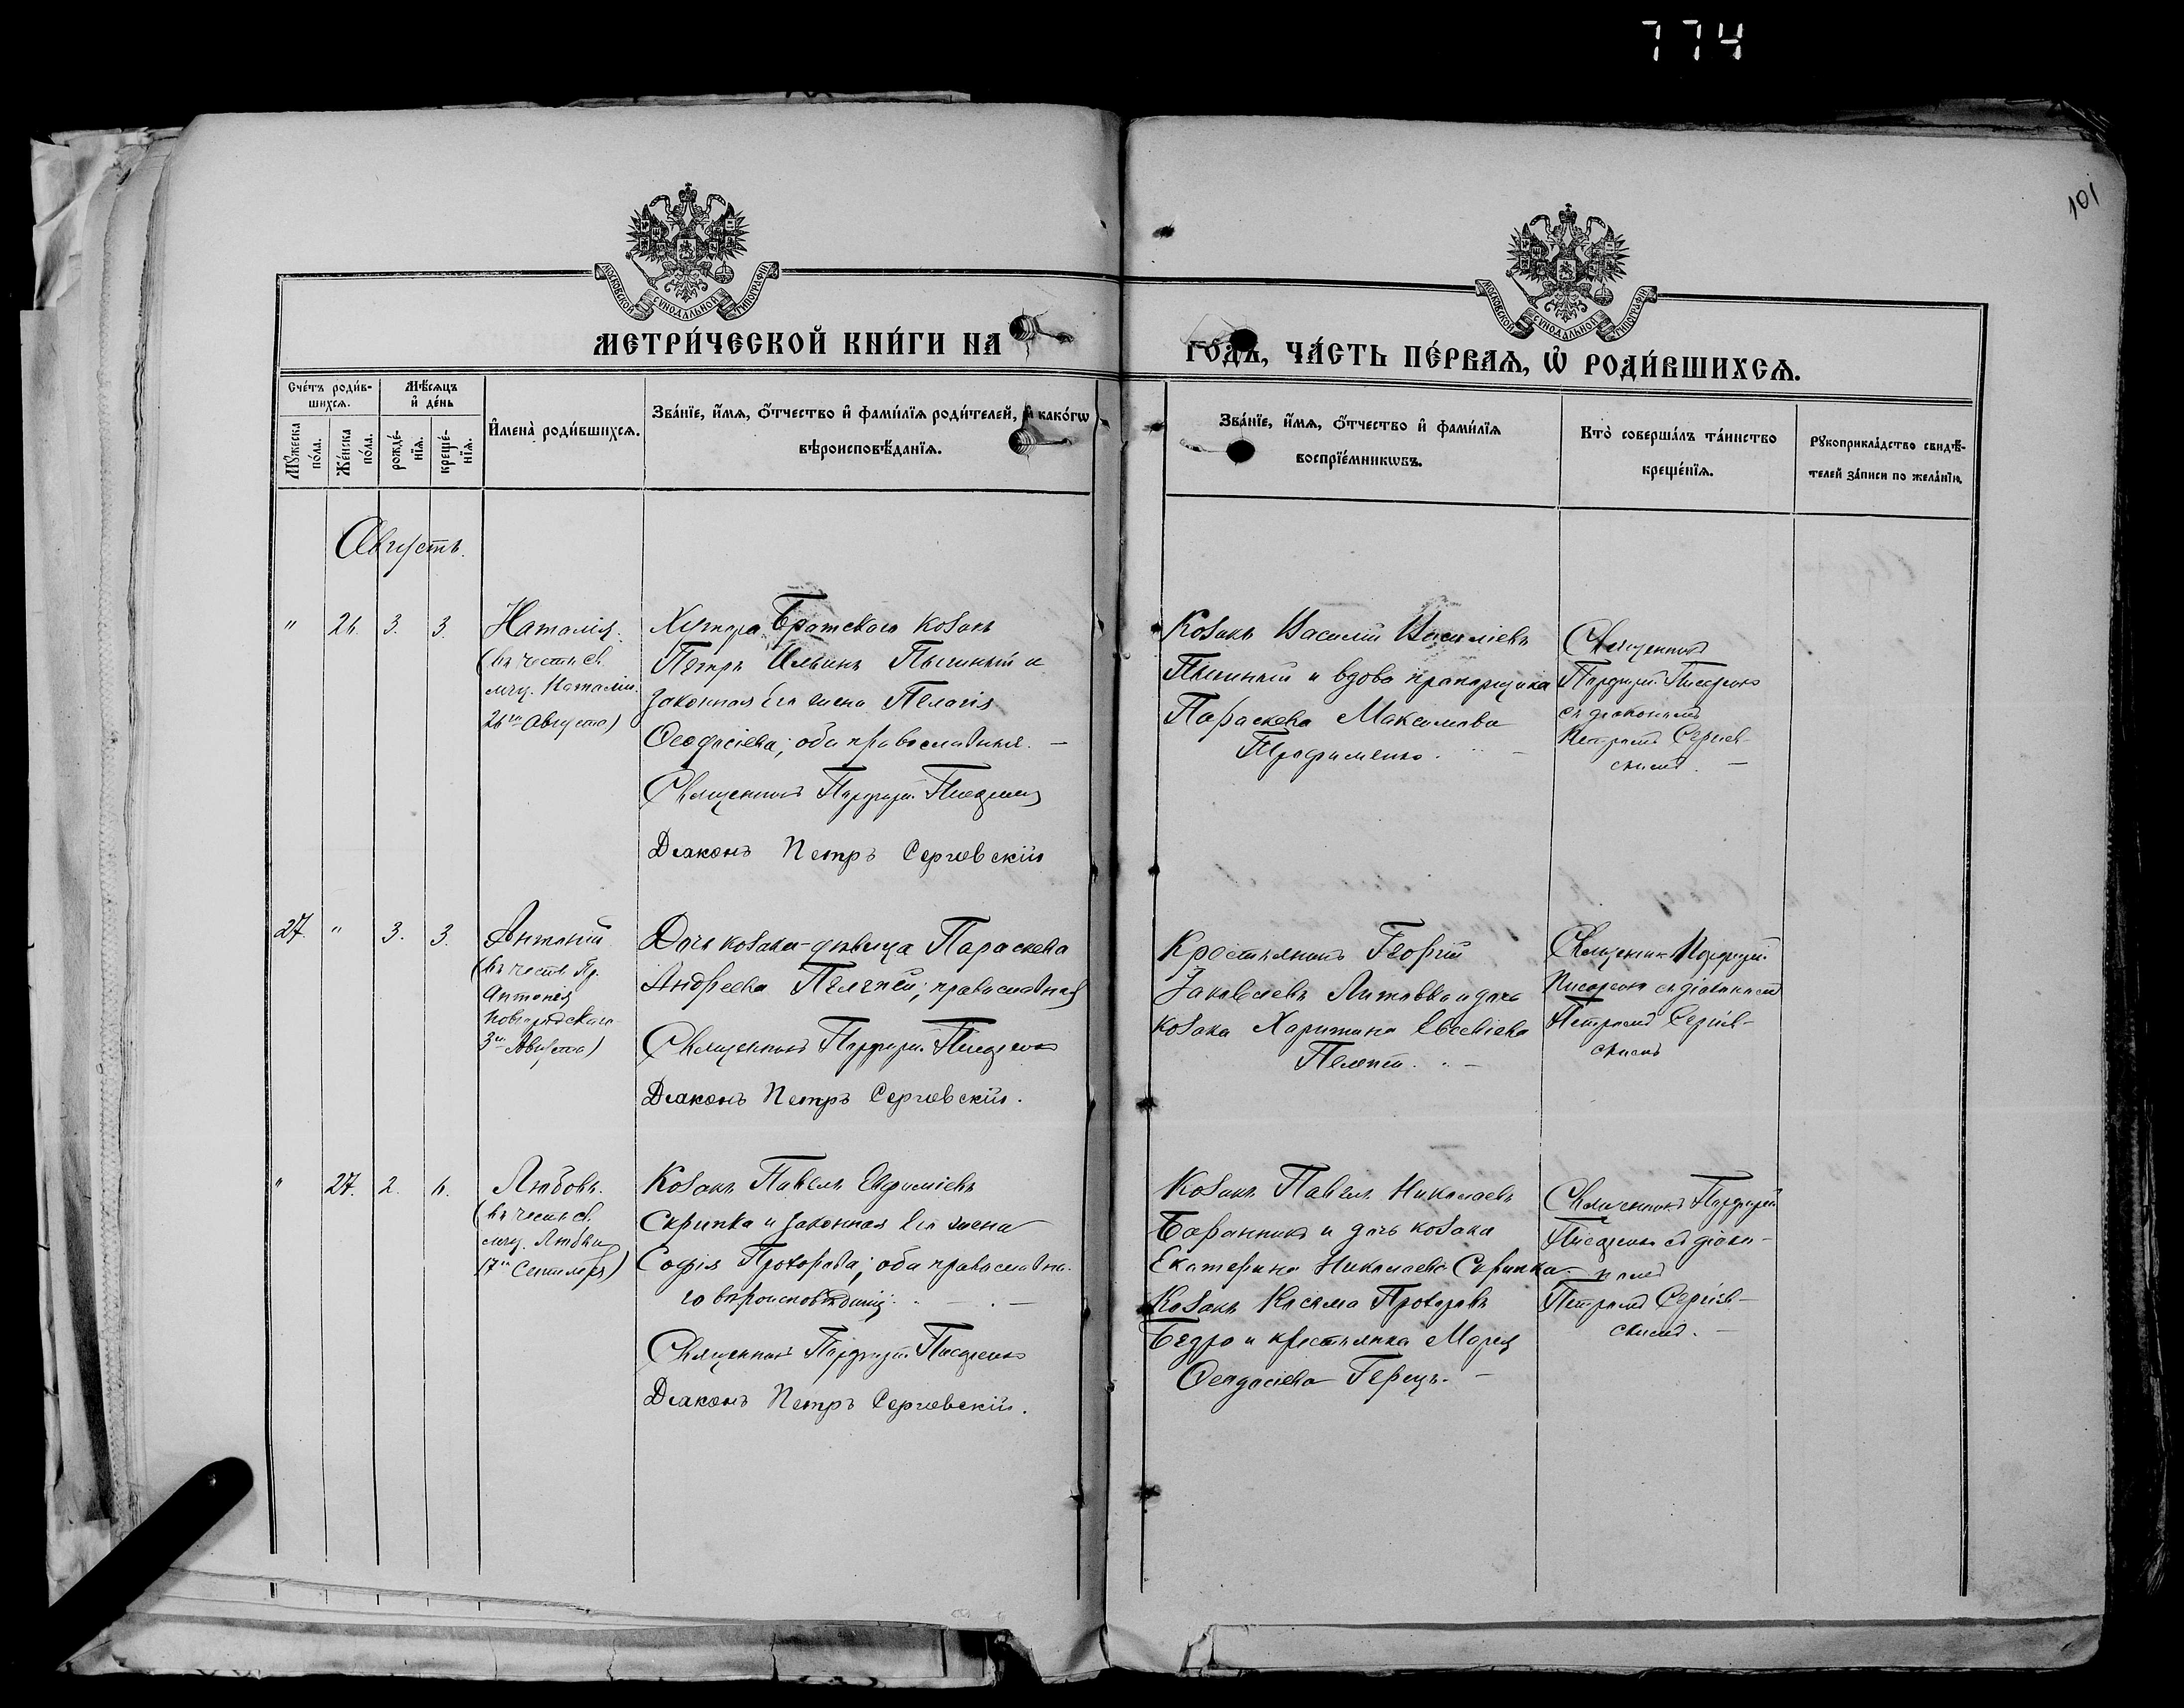 774
101
МОСКОВСКОЙ СѴНОДАЛЬНОЙ ТИПОГРАФІИ
МОСКОВСКОЙ СѴНОДАЛЬНОЙ ТИПОГРАФІИ
МЕТРИ́ЧЕСКОЙ КНИ́ГИ НА
ГОДЪ, ЧА́СТЬ ПЕ́РВАѦ, Ѡ҆ РОДИ́ВШИХСѦ.
Сче́тъ роди́в-
шихсѧ.
Мꙋ́жеска
по́ла.
Же́нска
по́ла.
Мѣ́сѧцъ
и҆ де́нь
рожде́-
нїѧ.
креще́-
нїѧ.
И҆мена̀ роди́вшихсѧ.
Зва́нїе, и҆́мѧ, ѻ҆́тчество и҆ фами́лїѧ роди́телей, и҆ како́гѡ
вѣроисповѣ́данїѧ.
Зва́нїе, и҆́мѧ, ѻ҆́тчество и҆ фами́лїѧ
воспрїе́мникѡвъ.
Кто̀ соверша́лъ та́инство
креще́нїѧ.
Рꙋкоприкла́дство свидѣ́-
телей за́писи по жела́нїю.
Августъ.
" 26. 3. 3.
Наталія.
(въ честь св.
мчц. Наталіи.
26го Августа)
Хутора Братскаго козакъ
Петръ Ильинъ Пышный и
законная его жена Пелагія
Ѳеодосіева; оба православные. —
Священникъ Порфирій Писаренко
Діаконъ Петръ Сергіевскій
Козакъ Василій Василіевъ
Пышный и вдова прапорщика
Параскева Максимова
Трофименко. —
Священникъ
Порфирій Писаренко
съ діакономъ
Петромъ Сергіев-
скимъ. —
27. " 3. 3.
Антоній
(въ честь Пр.
Антонія
Новгородскаго
3го Августа)
Дочь козака-дѣвица Параскева
Андреева Пелепей; православная
Священникъ Порфирій Писаренко
Діаконъ Петръ Сергіевскій.
Крестьянинъ Георгій
Іаковлевъ Литовка и дочь
козака Харитина Евсевіева
Пелепей. —
Священник Порфирій
Писаренко съ діакономъ
Петромъ Сергіев-
скимъ
" 27. 2. 6.
Любовь.
(въ честь св.
мчц. Любви
17го Сентября)
Козакъ Павелъ Евфиміевъ
Скрипка и законная его жена
Софія Прохорова; оба православна-
го вѣроисповѣданія. —
Священникъ Порфирій Писаренко
Діаконъ Петръ Сергіевскій.
Козакъ Павелъ Николаевъ
Баранникъ и дочь козака
Екатерина Николаева Скрипка
Козакъ Косьма Прохоровъ
Бедро и крестьянка Марія
Ѳеодосіева Герецъ. —
Священникъ Порфирій
Писаренко съ діако-
номъ
Петромъ Сергіев-
скимъ. —